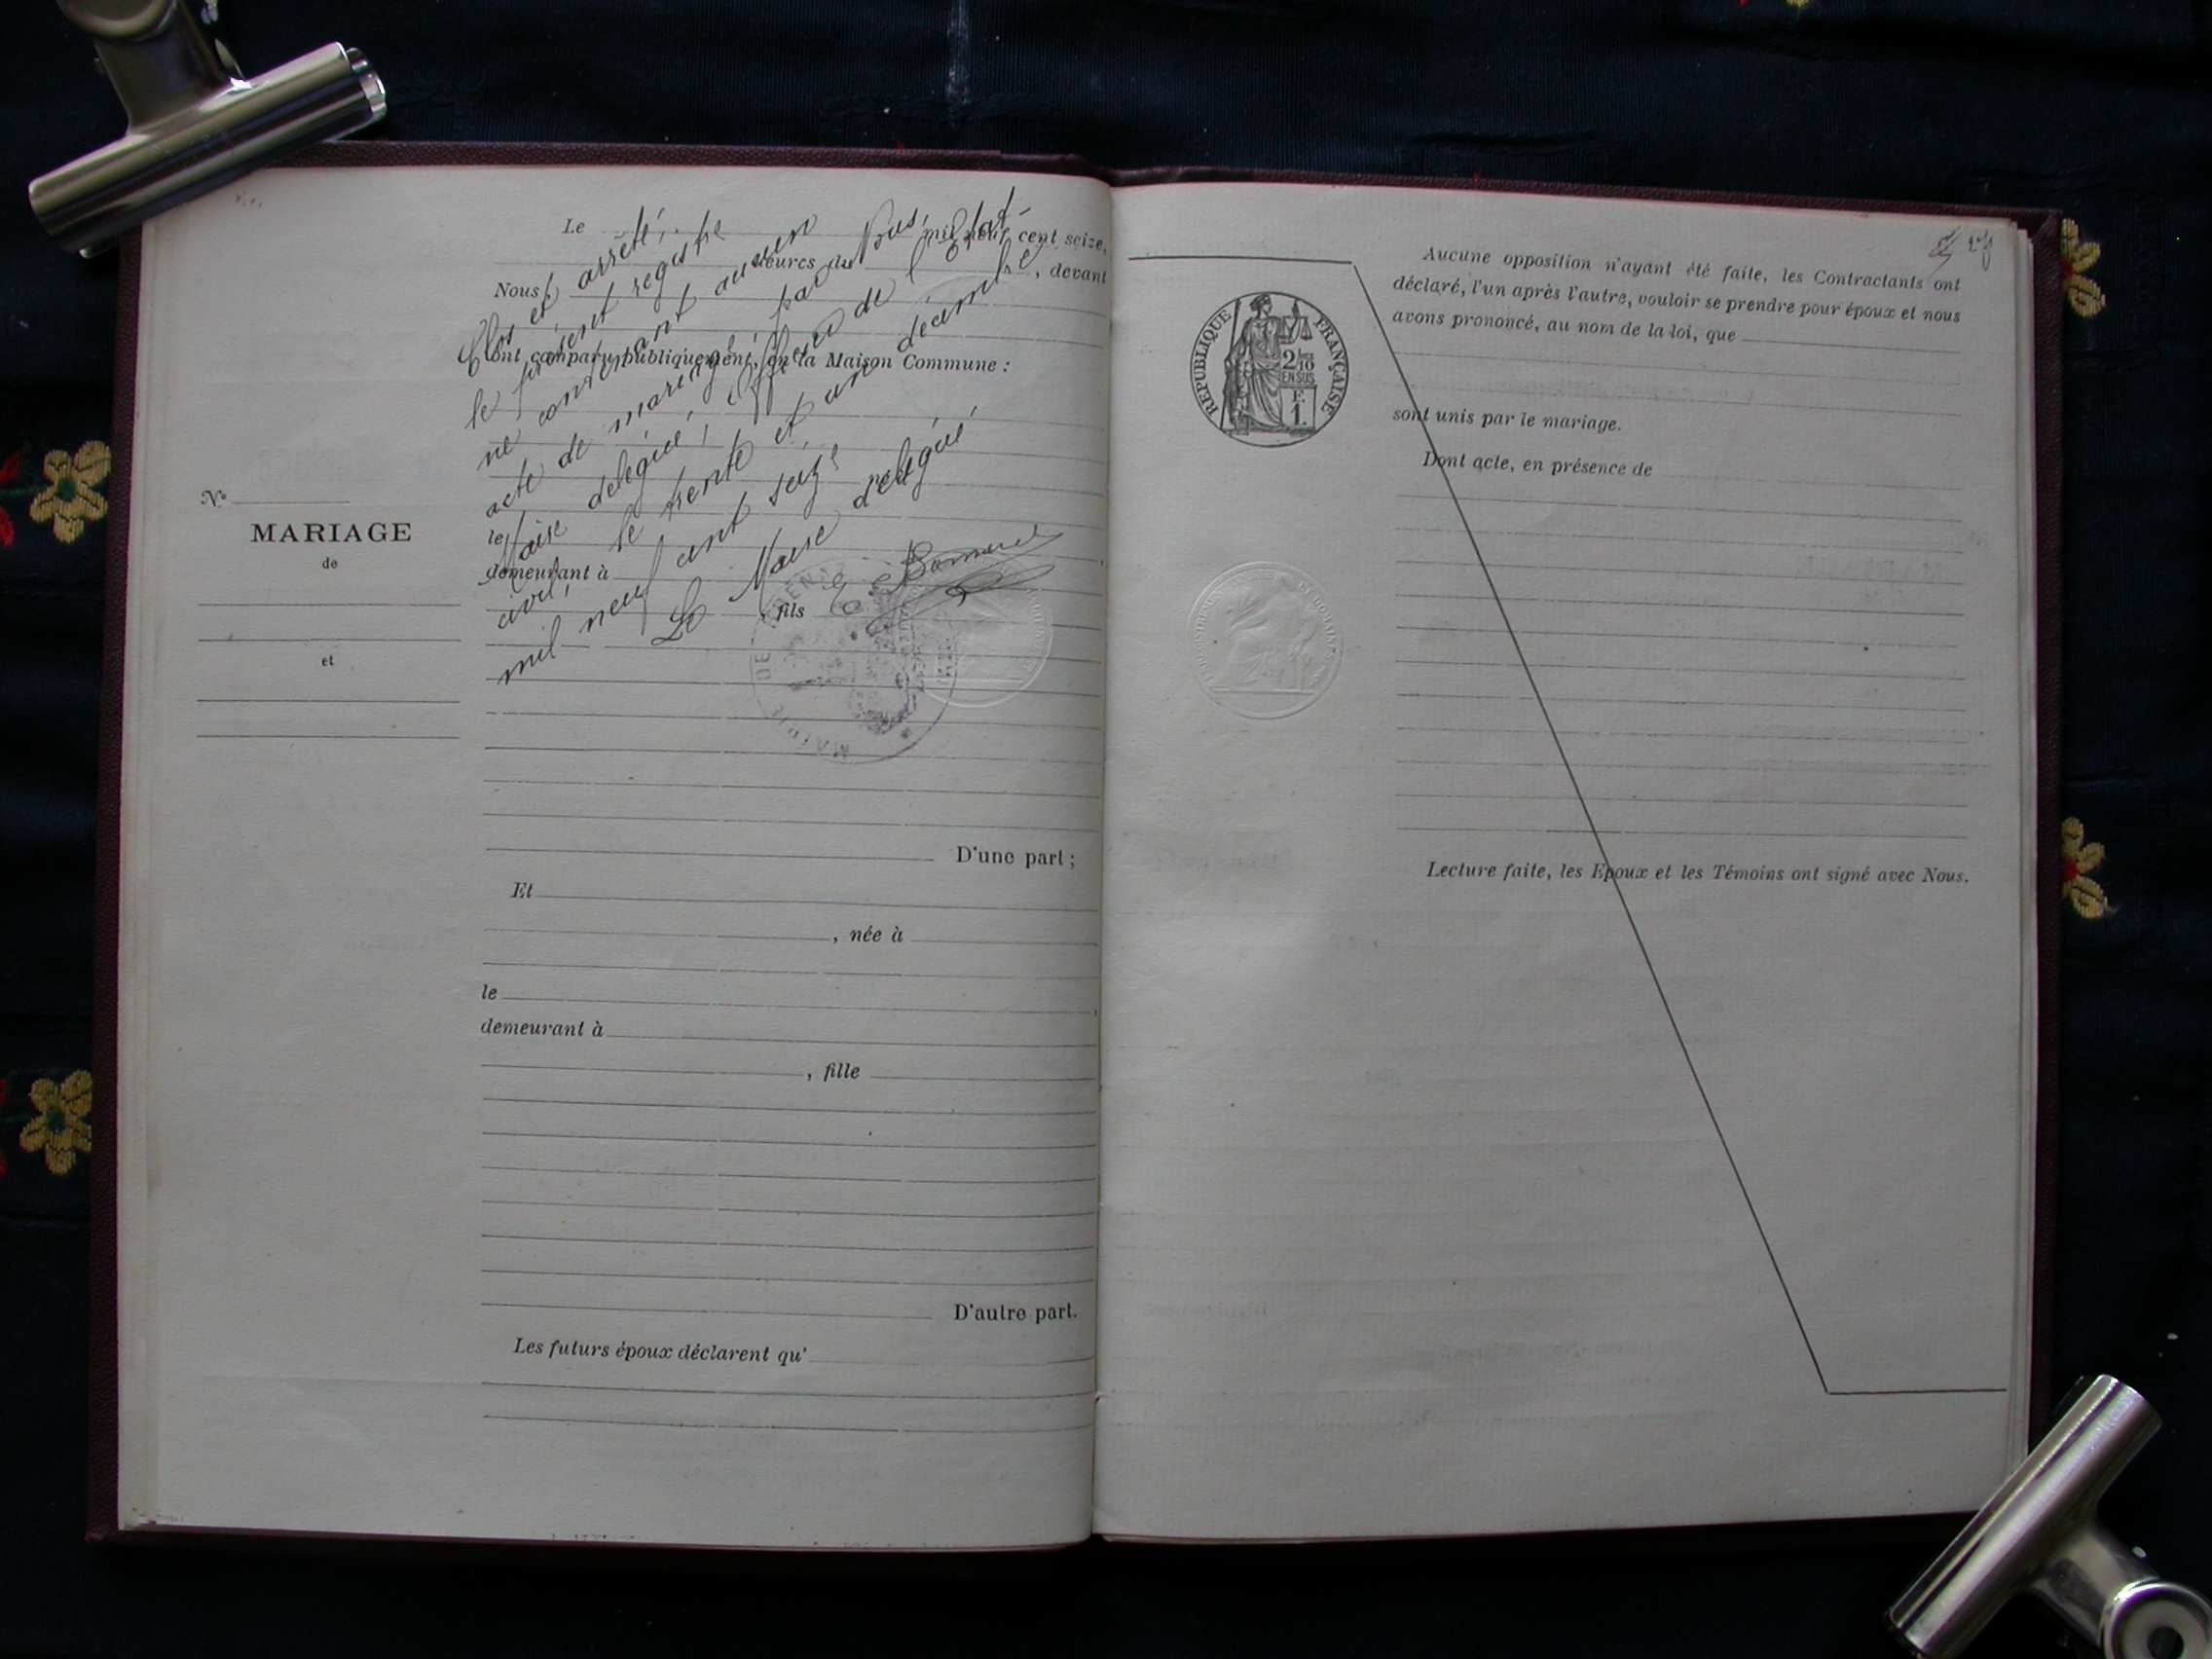 Le mil neuf cent seize,
heures du , devant
Nous,
ont comparu publiquement, en la Maison Commune :
Clos et arrêté,
le présent registre
ne contenant aucun
acte de mariage, par Nous,
Maire délégué, officier de l'état-
civil, le trente et un décembre
mil neuf cent seize
Le Maire délégué
le
demeurant à
, fils
MAIRIE DE
N°
MARIAGE
de
et
D'une part ;
Et
, née à
le
demeurant à
, fille
D'autre part.
Les futurs époux déclarent qu'
RÉPUBLIQUE FRANÇAISE
2/10
EN SUS
F.
1.
Aucune opposition n'ayant été faite, les Contractants ont
déclaré, l'un après l'autre, vouloir se prendre pour époux et nous
avons prononcé, au nom de la loi, que
sont unis par le mariage.
Dont acte, en présence de
Lecture faite, les Epoux et les Témoins ont signé avec Nous.